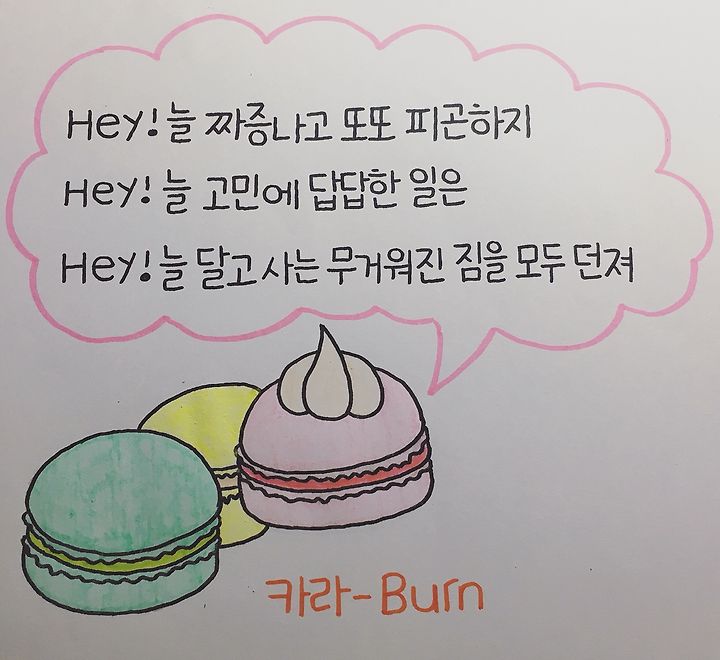 Hey! 늘 짜증나고 또또 피곤하지
Hey! 늘 고민에 답답한 일은
Hey! 늘 달고 사는 무거워진 짐을 모두 던져
카라-Burn